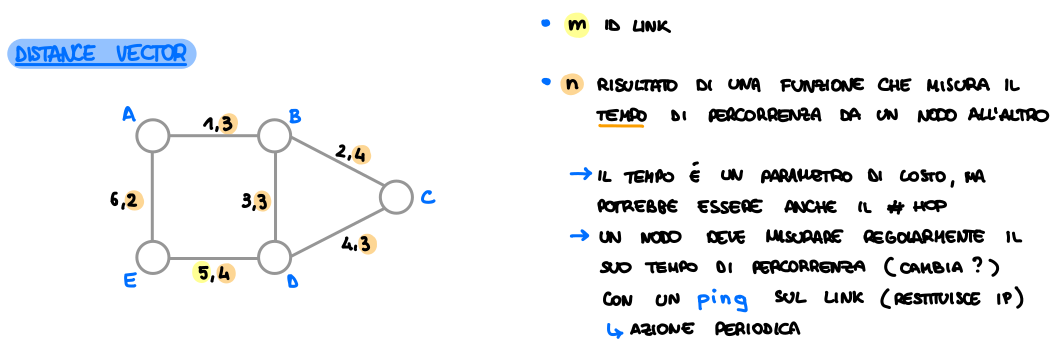 DISTANCE VECTOR
A
B
1,3
2,4
6,2
3,3
C
4,3
E
5,4
D
• m ID LINK
• n RISULTATO DI UNA FUNZIONE CHE MISURA IL
TEMPO DI PERCORRENZA DA UN NODO ALL'ALTRO
→ IL TEMPO É UN PARAMETRO DI COSTO, MA
POTREBBE ESSERE ANCHE IL # HOP
→ UN NODO DEVE MISURARE REGOLARMENTE IL
SUO TEMPO DI PERCORRENZA (CAMBIA?)
CON UN ping SUL LINK (RESTITUISCE IP)
↳ AZIONE PERIODICA